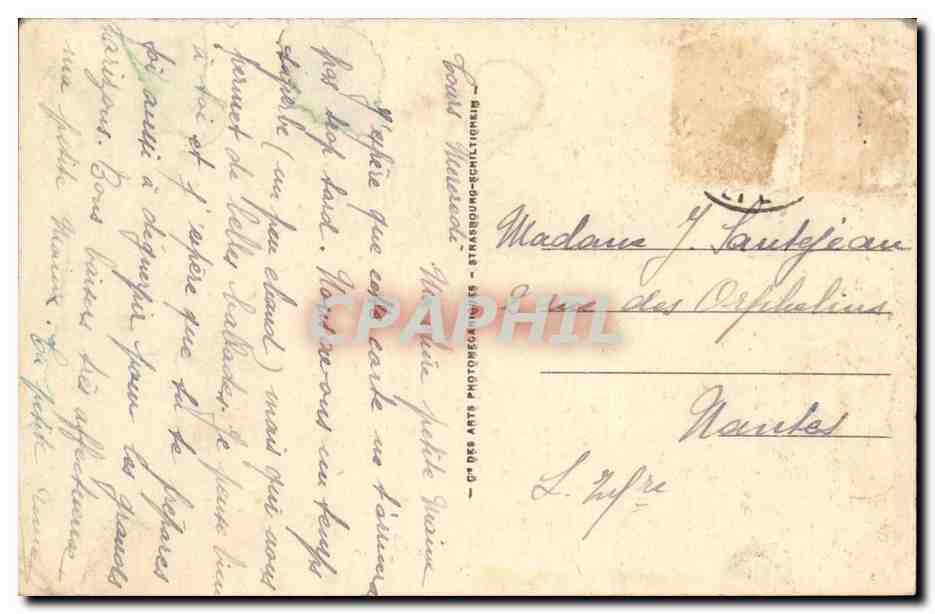 Tours Mercredi
Ma chère petite Mimi
J'espère que cette carte ne t'arrivera
pas trop tard. Nous avons un temps
superbe (un peu chaud) mais qui nous
permet de belles balades. Je pense bien
à toi et j'espère que tu te prépares
toi aussi à déguerpir pour les grands
horizons. Bons baisers très affectueux
ma petite Mimi. Ta petite
Cie DES ARTS PHOTOMECANIQUES - STRASBOURG-SCHILTIGHEIM -
Madame J. Santejean
2 rue des Orphelins
Nantes
L. Infre
CPAPHIL